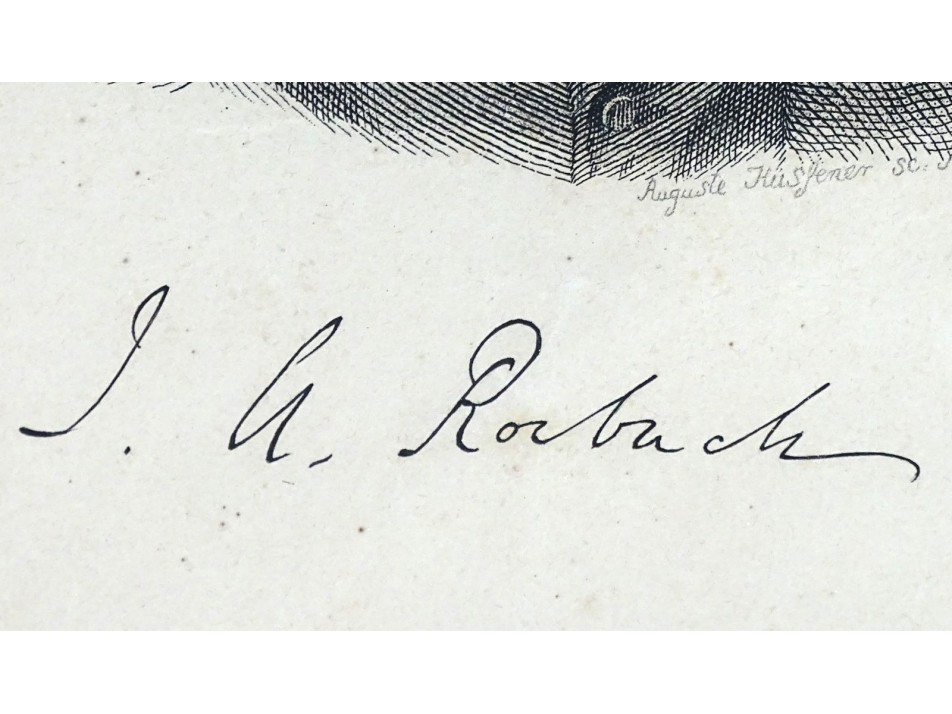 Auguste Hüssener sc.
J. A. Roebuck